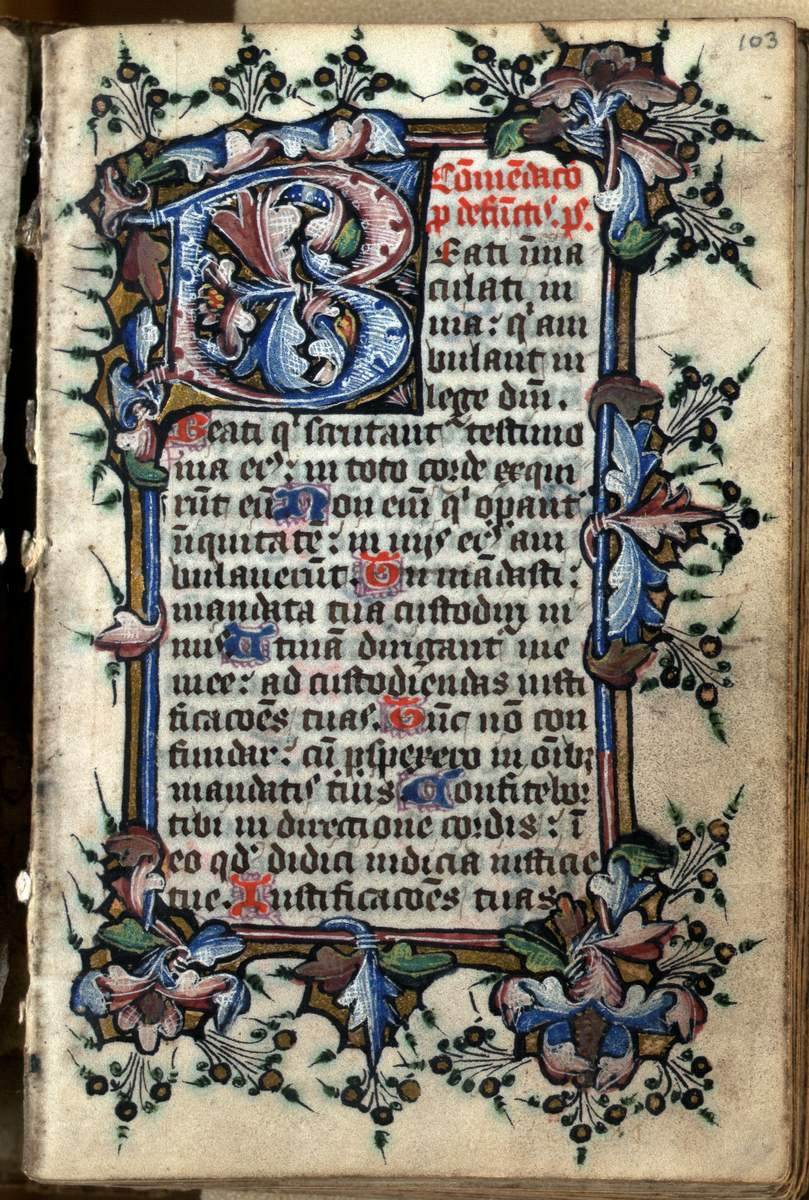 103
Cōmēdacō
p defūctis. ps.
Beati īma
culati in
uia: qi am
bulant in
lege dm̄.
Beati qi scrutant testimo
nia eiꝰ: in toto corde exqui
rūt eū Non eim̄ qi opant
īiquitatē: in uijs eiꝰ am
bulauerūt. Tu mādasti:
mandata tua custodiri ni
mis Utinā dirigant uie
mee: ad custodiendas iusti
ficacoēs tuas. Tūc nō con
fundar: cū pspexero in oīb;
mandatis tuis Confitebor
tibi in directione cordis: ī
eo qd didici iudicia iusticie
tue. Iustificacoēs tuas